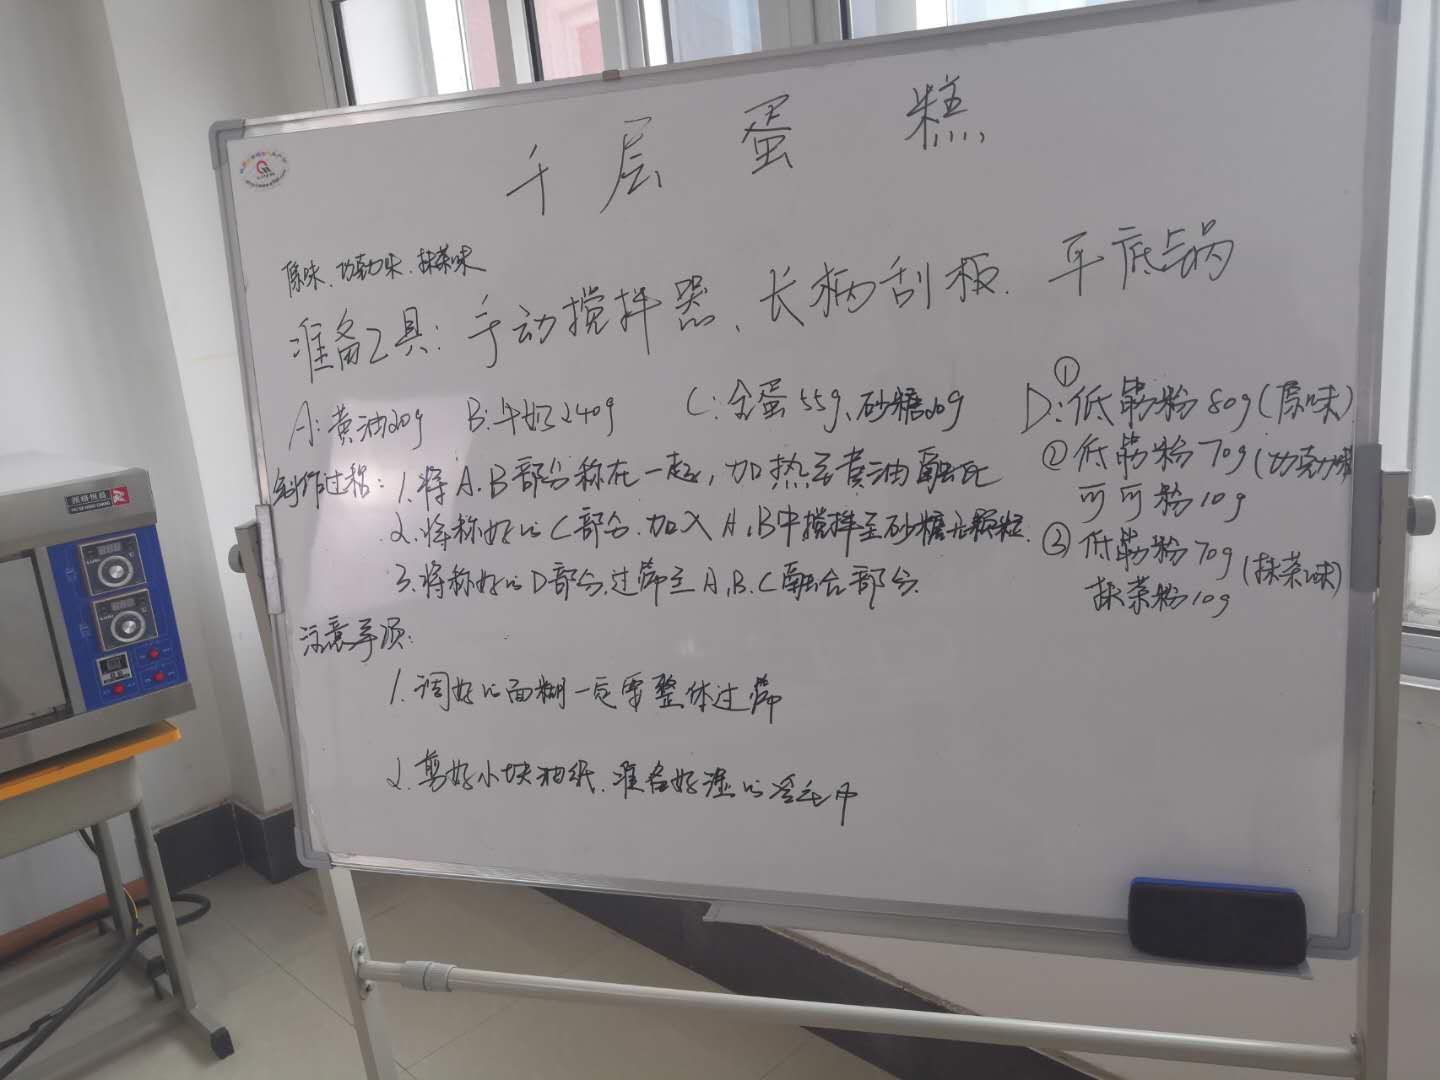 千层蛋糕
原味、巧克力味、抹茶味
准备工具：手动搅拌器、长柄刮板、平底锅
A：黄油20g B：牛奶240g C：全蛋55g、砂糖20g D：①低筋粉80g（原味）
②低筋粉70g（巧克力味
可可粉10g
③低筋粉70g（抹茶味）
抹茶粉10g
制作过程：1.将A.B部分称在一起，加热至黄油融化
2.将称好的C部分.加入A.B中搅拌至砂糖无颗粒.
3.将称好的D部分.过筛至A.B.C融合部分.
注意事项：
1.调好的面糊一定要整体过筛
2.剪好小块油纸.准备好湿的冷毛巾